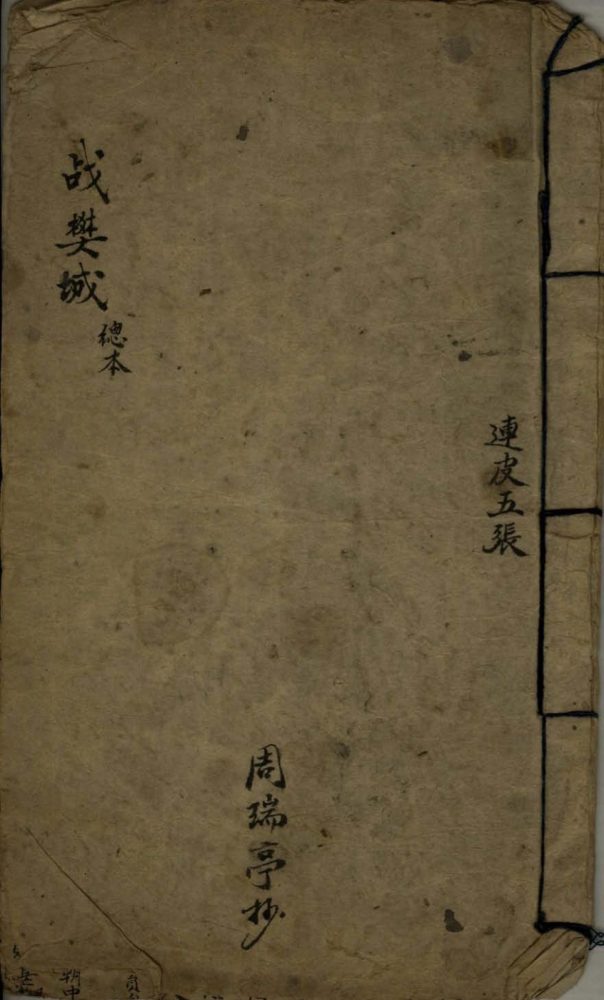 連皮五張
周瑞亭抄
战樊城
總本